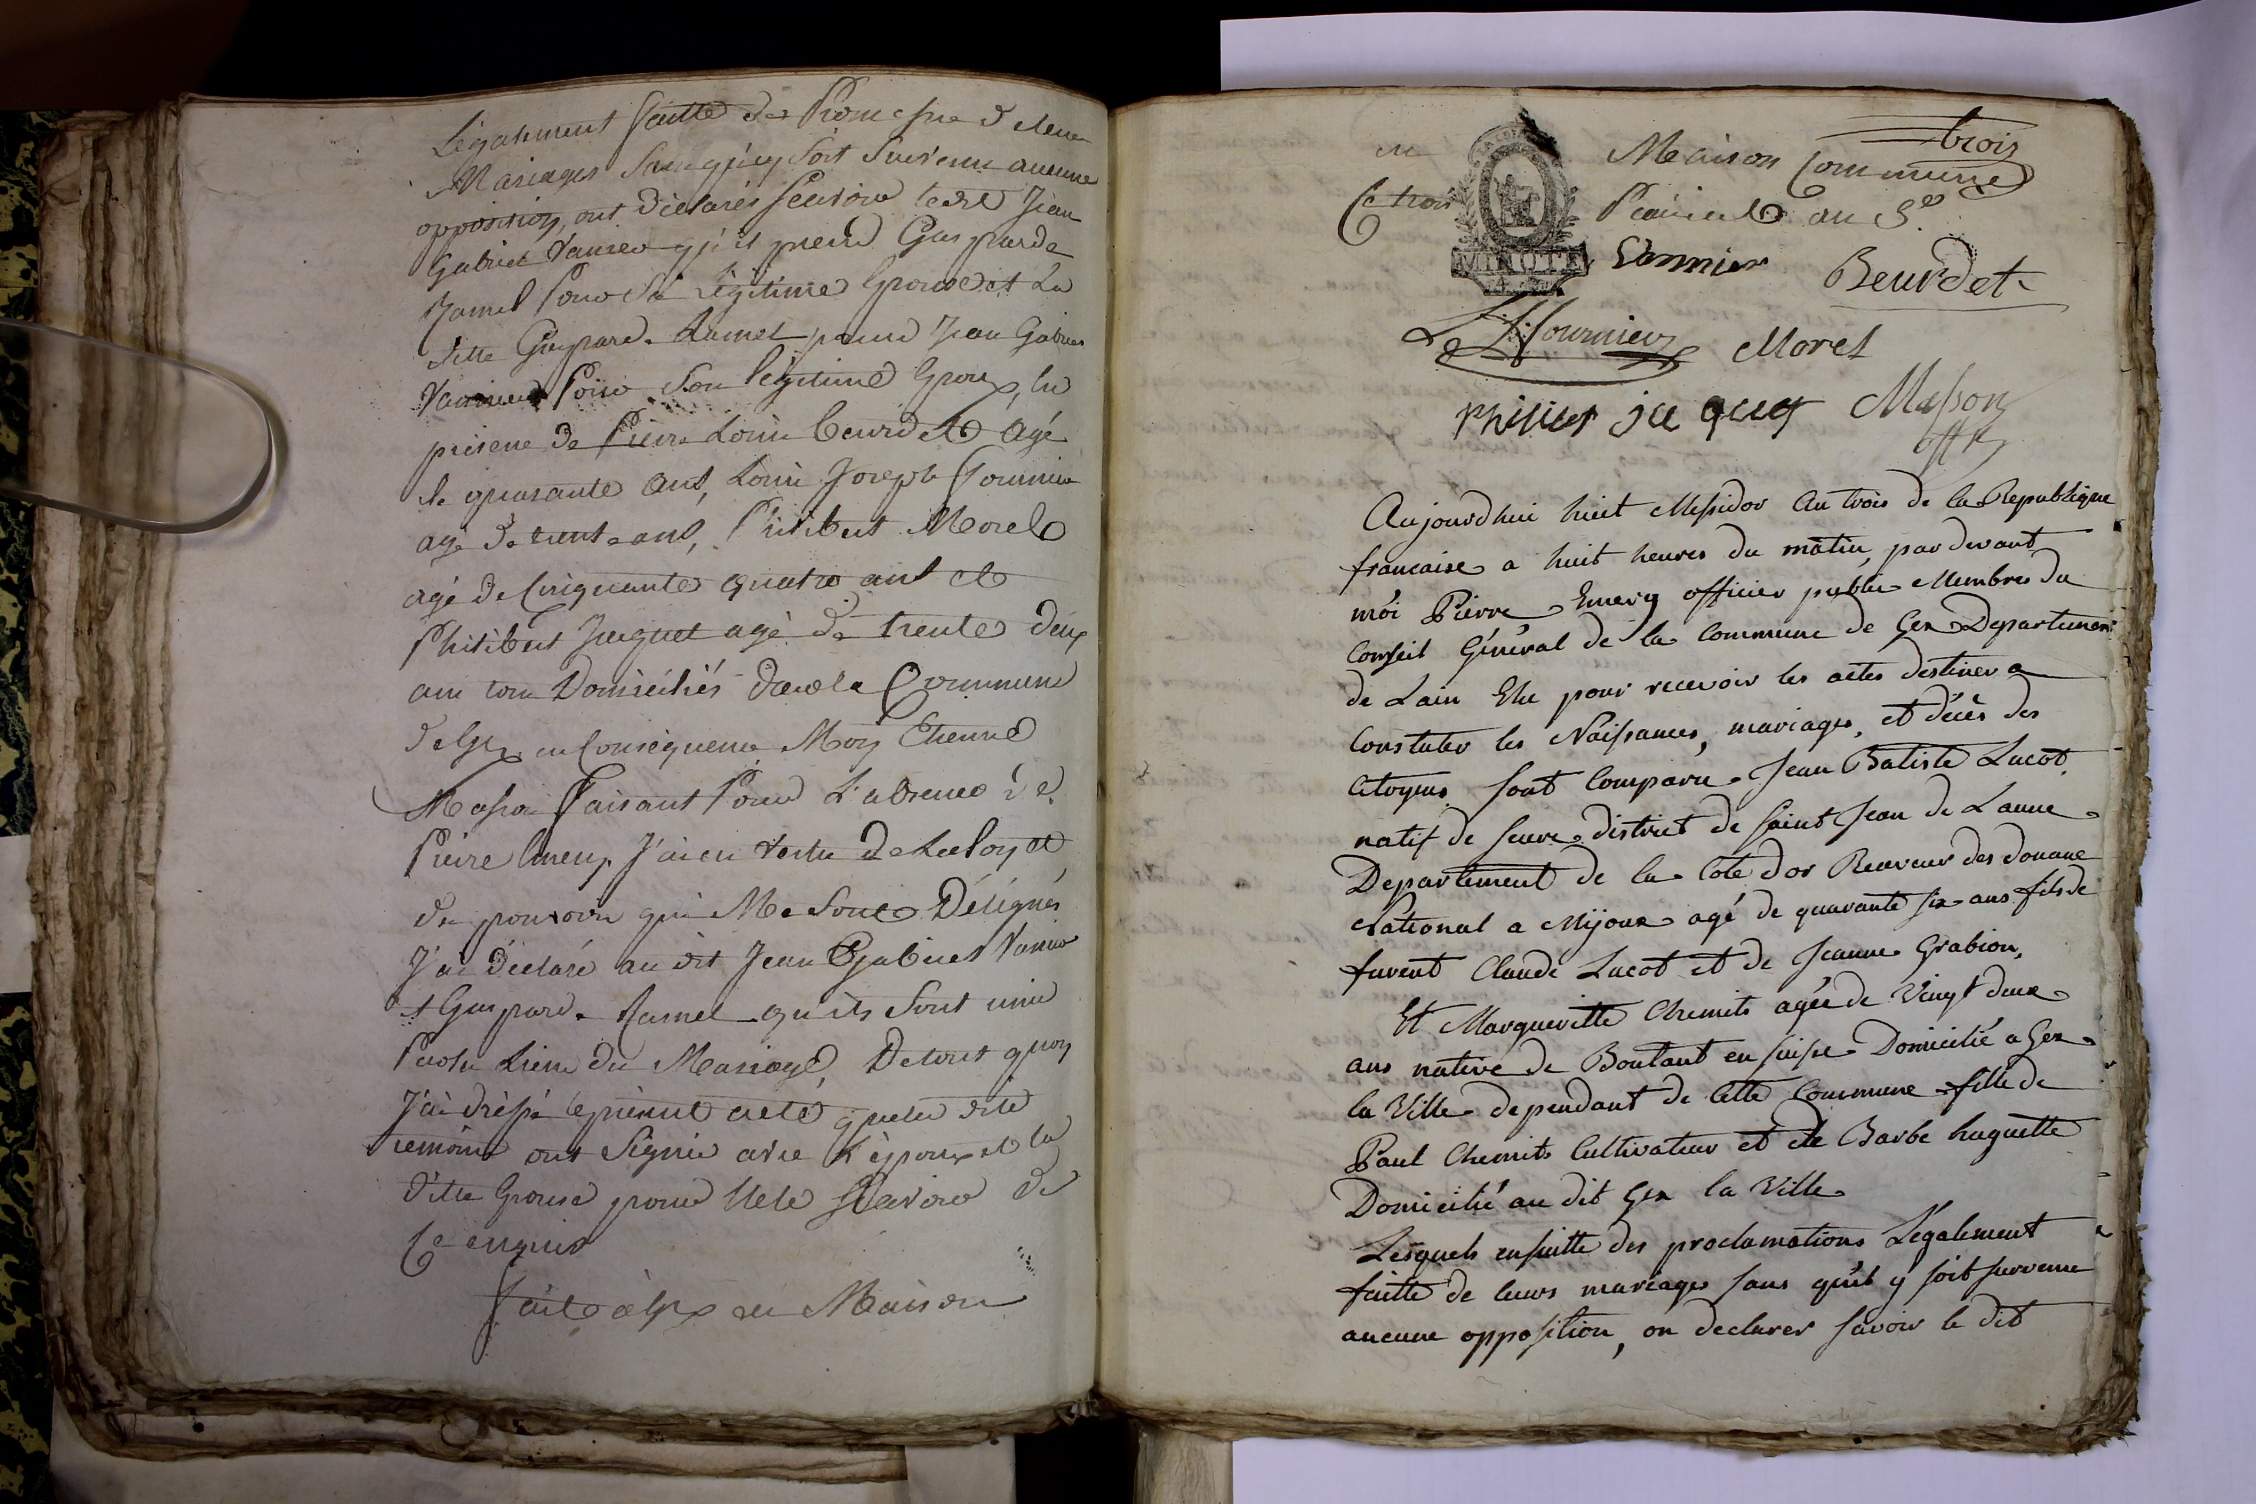 Légalement faitte de Promesse de leur
Mariages sans qu'ily soit survenu aucune
opposition, ont déclarés scavoir ledit Jean
Gabriel Vannier qu'il prend Gasparde
Ramel Pour sa légitime Epouse et La
ditte Gasparde Ramel prend Jean Gabriel
Vannier Pour son légitime Epoux, en
présence de Pierre Louis Beurdet agé
de quarante ans, Louis Joseph fournier
agé de trente ans, Philibert Morel
agé de Cinquante quatre ans et
Philibert Jacquet agé de trente deux
ans tous Domiciliés dans la Commune
de Gex en Conséquence Moy Etienne
Masson faisant Pour L'absence de
Pierre Emery J'ai en vertu de La loy et
des pouvoirs qui Me sont Délégués
J'ai déclaré au dit Jean Gabriel Vannier
et Gasparde Ramel qu'ils sont unis
Par les Liens du Mariage, De tout quoy
J'ai dréssé le présent acte que les dits
temoins ont signés avec L'époux et la
ditte Epouse pour ne le scavoir de
Ce enquis
fait à Gex en Maison
trois
en Maison Commune
Ce trois Prairial an 3e.
MINUTE
Vannier Beurdet
L J fournier Morel
Philiber jacquet Masson
offr
Aujourdhui huit Messidor an trois de la Republique
francaise a huit heures du matin, par devant
môi Pierre Emery officier public Membre du
Conseil Général de la Commune de Gex Departement
de Lain Elu pour recevoir les actes destines a
Constater les Naissances, mariages, et décès des
Citoyens sont Comparu Jean Batiste Lucot
natif de Seure district de saint Jean de Laune
Departement de la Cote dor Receveur des douane
National a Mijoux agé de quarante six ans fils de
furent Claude Lucot et de Jeanne Grabion,
Et Margueritte Chemits agée de Vingt deux
ans native de Boutant en suisse Domicilié a Gex
la Ville dependant de Cette Commune fille de
Paul Chemits Cultivateur et de Barbe huguette
Domicilié au dit Gex la Ville
Lesquels ensuitte des proclamations Légalement
faitte de leurs mariages sans quil y soit survenu
aucune opposition, on declarer savoir le dit